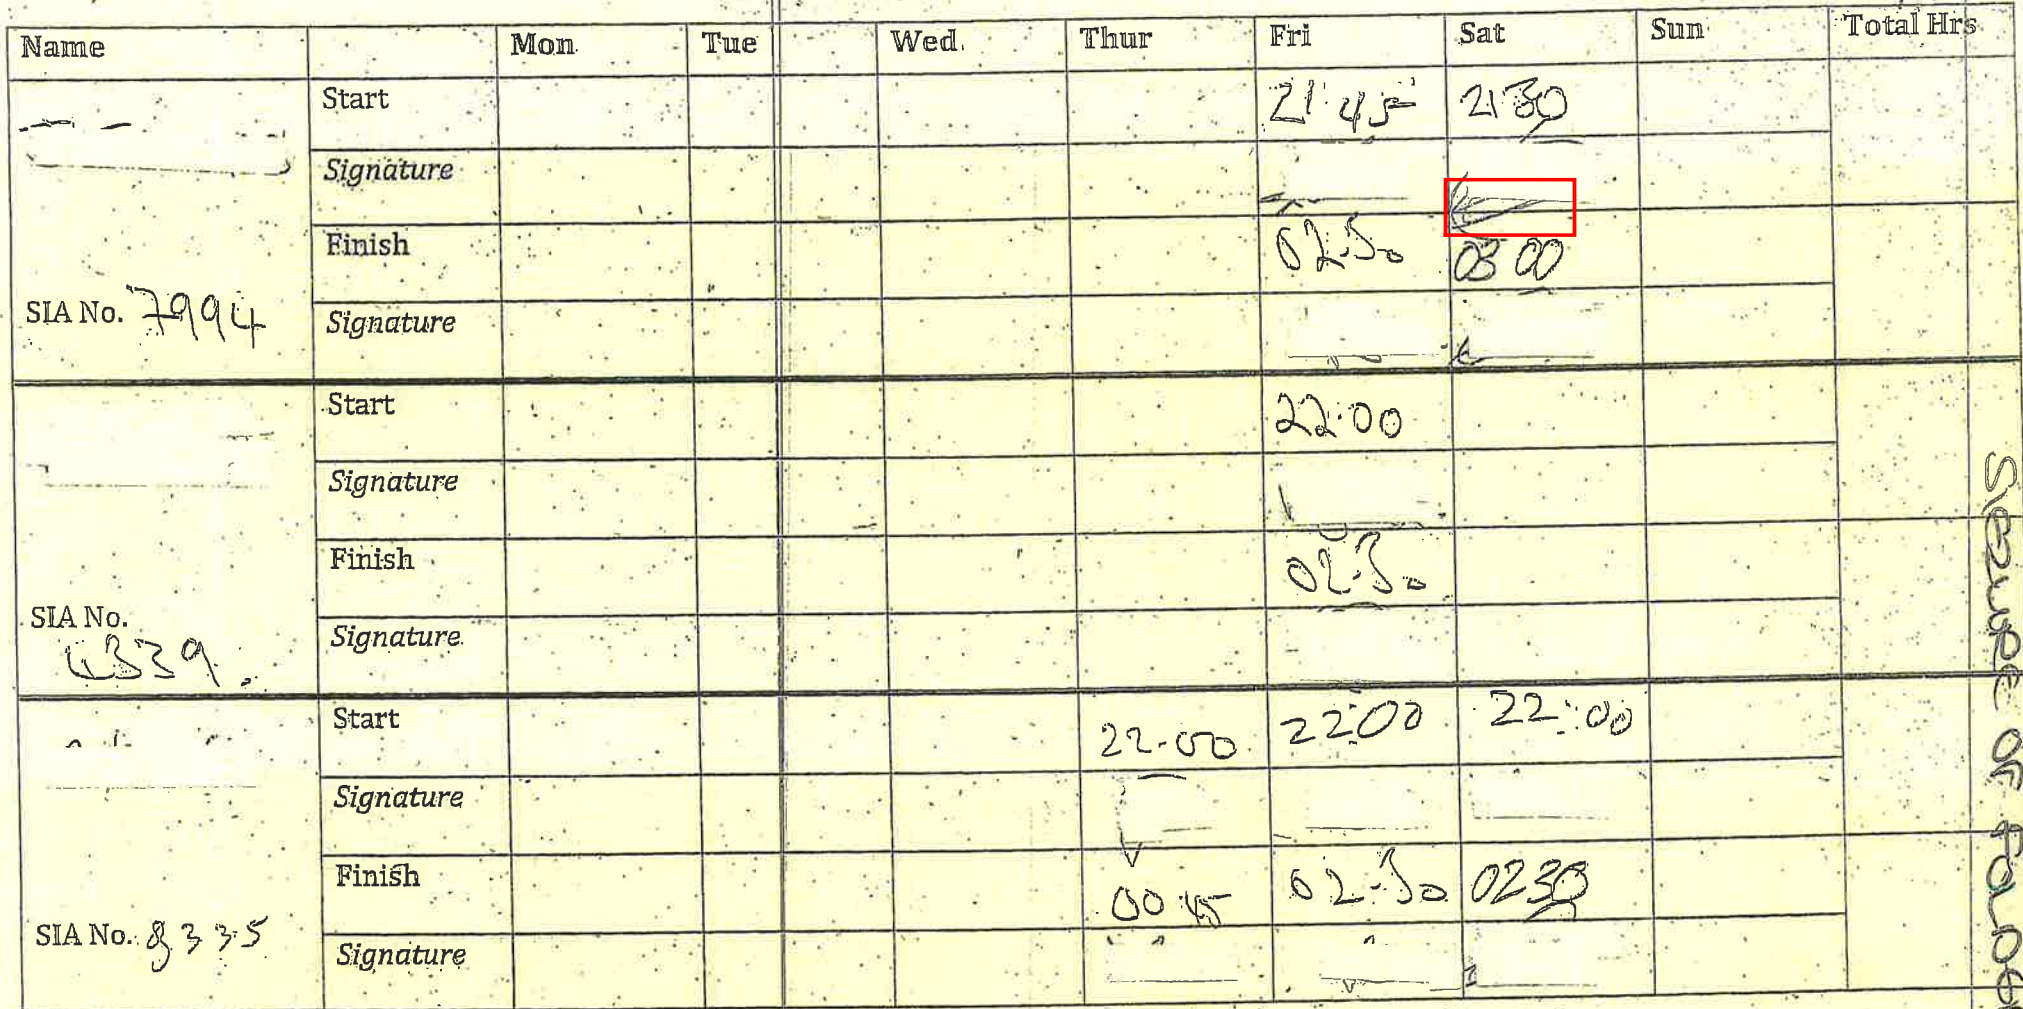 Name Mon Tue Wed. Thur Fri Sat Sun Total Hrs
Start 21:45 2130
Signature
Finish 02:30 03 00
SIA No. 7994
Signature
Start 22:00
Signature
Finish 02:30
SIA No.
4339.
Signature
Start 22-00 22:00 22:00
Signature
Finish 00 45 02-30 0230
SIA No. 8335
Signature